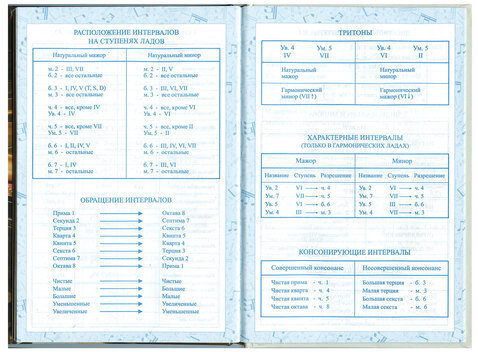 РАСПОЛОЖЕНИЕ ИНТЕРВАЛОВ
НА СТУПЕНЯХ ЛАДОВ
Натуральный мажор Натуральный минор
м. 2 - III, VII м. 2 - II, V
б. 2 - все остальные б. 2 - все остальные
б. 3 - I, IV, V (T, S, D) б. 3 - III, VI, VII
м. 3 - все остальные м. 3 - все остальные
ч. 4 - все, кроме IV ч. 4 - все, кроме VI
Ув. 4 - IV Ув. 4 - VI
ч. 5 - все, кроме VII ч. 5 - все, кроме II
Ум. 5 - VII Ум. 5 - II
б. 6 - I, II, IV, V б. 6 - III, IV, VI, VII
м. 6 - остальные м. 6 - остальные
б. 7 - I, IV б. 7 - III, VI
м. 7 - остальные м. 7 - остальные
ОБРАЩЕНИЕ ИНТЕРВАЛОВ
Прима 1 Октава 8
Секунда 2 Септима 7
Терция 3 Секста 6
Кварта 4 Квинта 5
Квинта 5 Кварта 4
Секста 6 Терция 3
Септима 7 Секунда 2
Октава 8 Прима 1
Чистые Чистые
Малые Большие
Большие Малые
Уменьшенные Увеличенные
Увеличенные Уменьшенные
ТРИТОНЫ
Ув. 4 Ум. 5 Ув. 4 Ум. 5
IV VII VI II
Натуральный Натуральный
мажор минор
Гармонический Гармонический
минор (VII↑) мажор (VI↓)
ХАРАКТЕРНЫЕ ИНТЕРВАЛЫ
(ТОЛЬКО В ГАРМОНИЧЕСКИХ ЛАДАХ)
Мажор Минор
Название Ступень Разрешение Название Ступень Разрешение
Ув. 2 VI → ч. 4 Ув. 2 VI → ч. 4
Ум. 7 VII → ч. 5 Ум. 7 VII → ч. 5
Ув. 5 VI → б. 6 Ув. 5 III → б. 6
Ум. 4 III → м. 3 Ум. 4 VII → м. 3
КОНСОНИРУЮЩИЕ ИНТЕРВАЛЫ
Совершенный консонанс Несовершенный консонанс
Чистая прима - ч. 1 Большая терция - б. 3
Чистая кварта - ч. 4 Малая терция - м. 3
Чистая квинта - ч. 5 Большая секста - б. 6
Чистая октава - ч. 8 Малая секста - м. 6